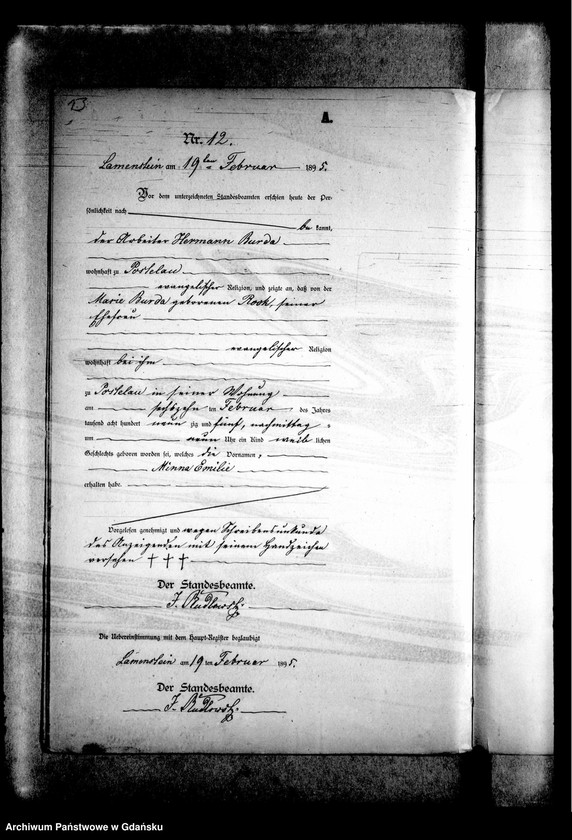 A.
Nr. 12.
Lamenstein am 19ten Februar 1895.
Vor dem unterzeichneten Standesbeamten erschien heute, der Per-
sönlichkeit nach
be kannt,
der Arbeiter Hermann Burda
wohnhaft zu Postelau
evangelischer Religion, und zeigte an, daß von der
Marie Burda geborenen Rook, seiner
Ehefrau
evangelischer Religion
wohnhaft bei ihm
zu Postelau in seiner Wohnung
am sechszehn ten Februar des Jahres
tausend acht hundert neun zig und fünf, nachmittag s
um neun Uhr ein Kind weib lichen
Geschlechts geboren worden sei, welches die Vornamen,
Minna Emilie
erhalten habe.
Vorgelesen genehmigt und wegen Schreibensunkunde
des Anzeigenden mit seinem Handzeichen
versehen † † †
Der Standesbeamte.
J.
Die Uebereinstimmung mit dem Haupt-Register beglaubigt
Lamenstein am 19 ten Februar 1895.
Der Standesbeamte.
J.
Archiwum Państwowe w Gdańsku